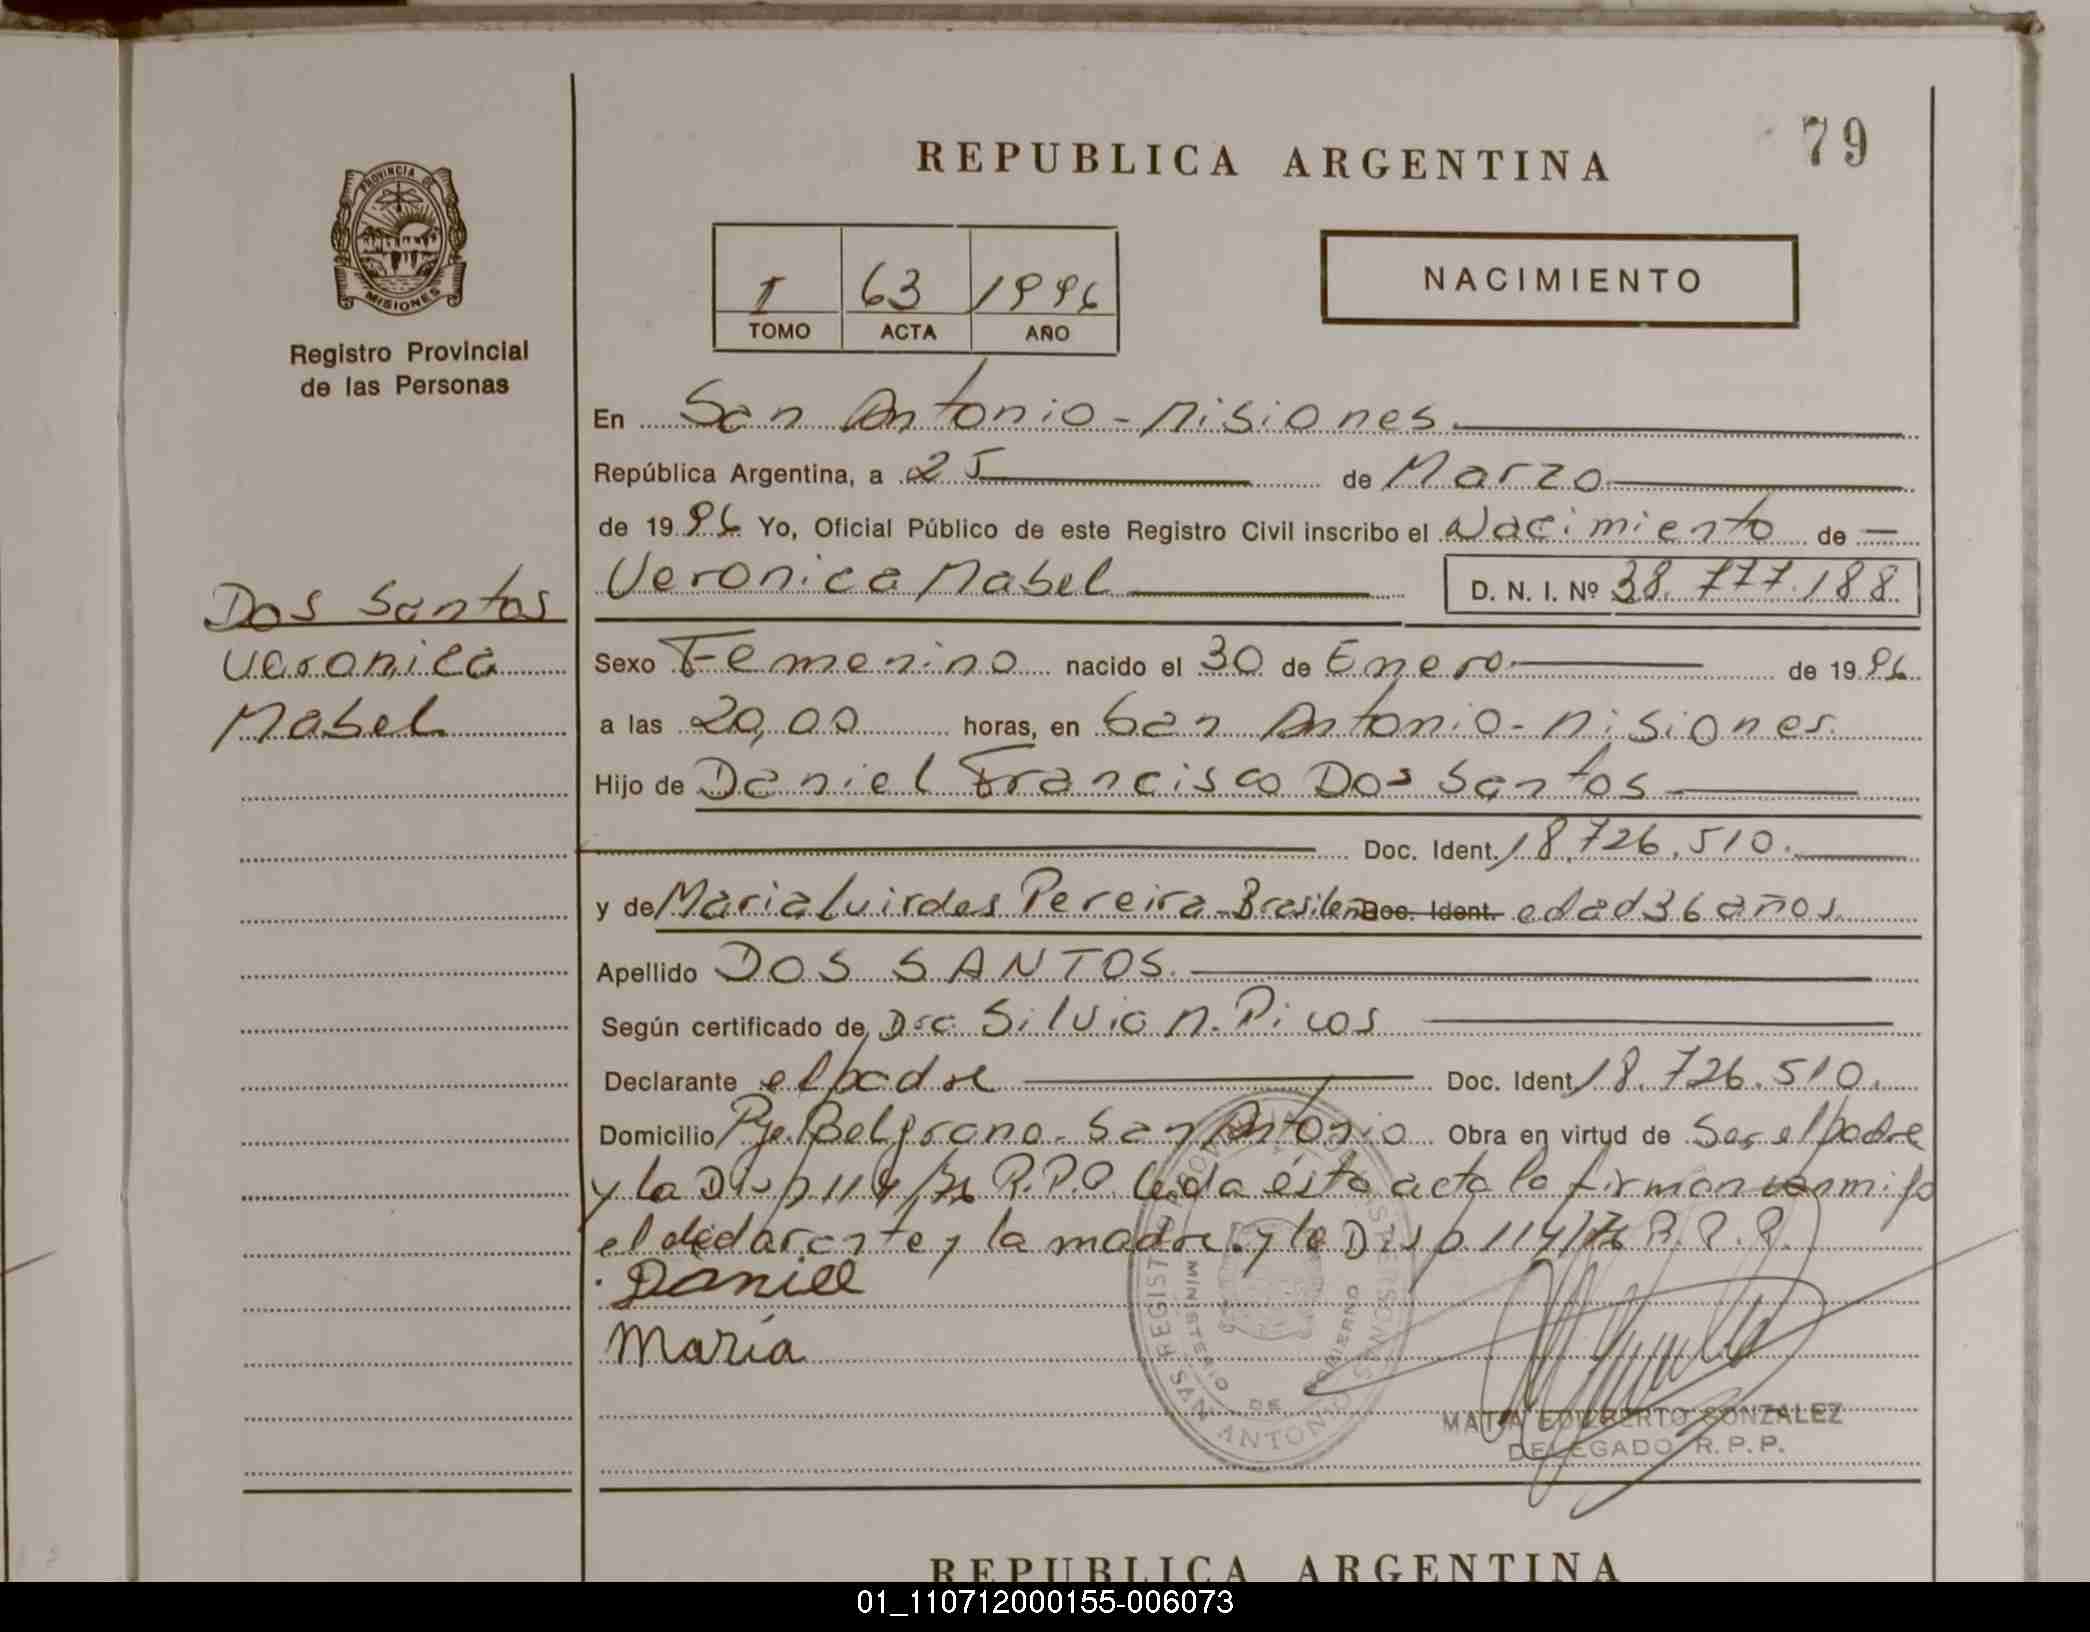 79
REPUBLICA ARGENTINA
PROVINCIA DE
MISIONES
Registro Provincial
de las Personas
I 63 1996
TOMO ACTA AÑO
NACIMIENTO
En San Antonio - Misiones.
República Argentina, a 25 de Marzo
de 1996 Yo, Oficial Público de este Registro Civil inscribo el Nacimiento de —
Veronica Mabel D. N. I. Nº 38.777.188
Dos Santos
Veronica
Mabel
Sexo Femenino nacido el 30 de Enero de 1996
a las 20,00 horas, en San Antonio - Misiones.
Hijo de Daniel Francisco Dos Santos
Doc. Ident. 18.726.510.
y de Maria Luirdes Pereira - Brasileña Doc. Ident. edad 36 años.
Apellido DOS SANTOS.
Según certificado de Dra. Silvia N. Picos
Declarante el padre Doc. Ident. 18.726.510.
Domicilio Pje. Belgrano - San Antonio Obra en virtud de Ser el padre
y la Disp 114/76 R.P.P. leida ésta acta la firman conmigo
el declarante y la madre. y la Disp 114/76 R.P.P.
Daniel
Maria
REGISTRO PROVINCIAL DE LAS PERSONAS
MINISTERIO DE GOBIERNO
SAN ANTONIO
GONZALEZ
DELEGADO R.P.P.
REPUBLICA ARGENTINA
01_110712000155-006073